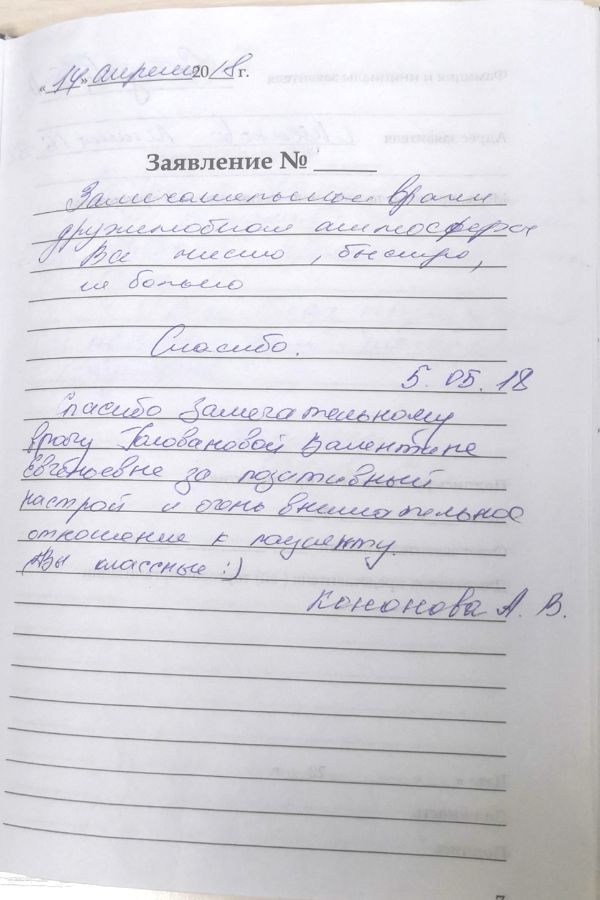 «14» апреля 2018 г.
Заявление №
Замечательные врачи
дружелюбная атмосфера
Все чисто, быстро,
не больно
Спасибо.
5.05.18
Спасибо замечательному
врачу Головановой Валентине
Евгеньевне за позитивный
настрой и очень внимательное
отношение к пациенту.
Вы классные :)
Кононова А. В.